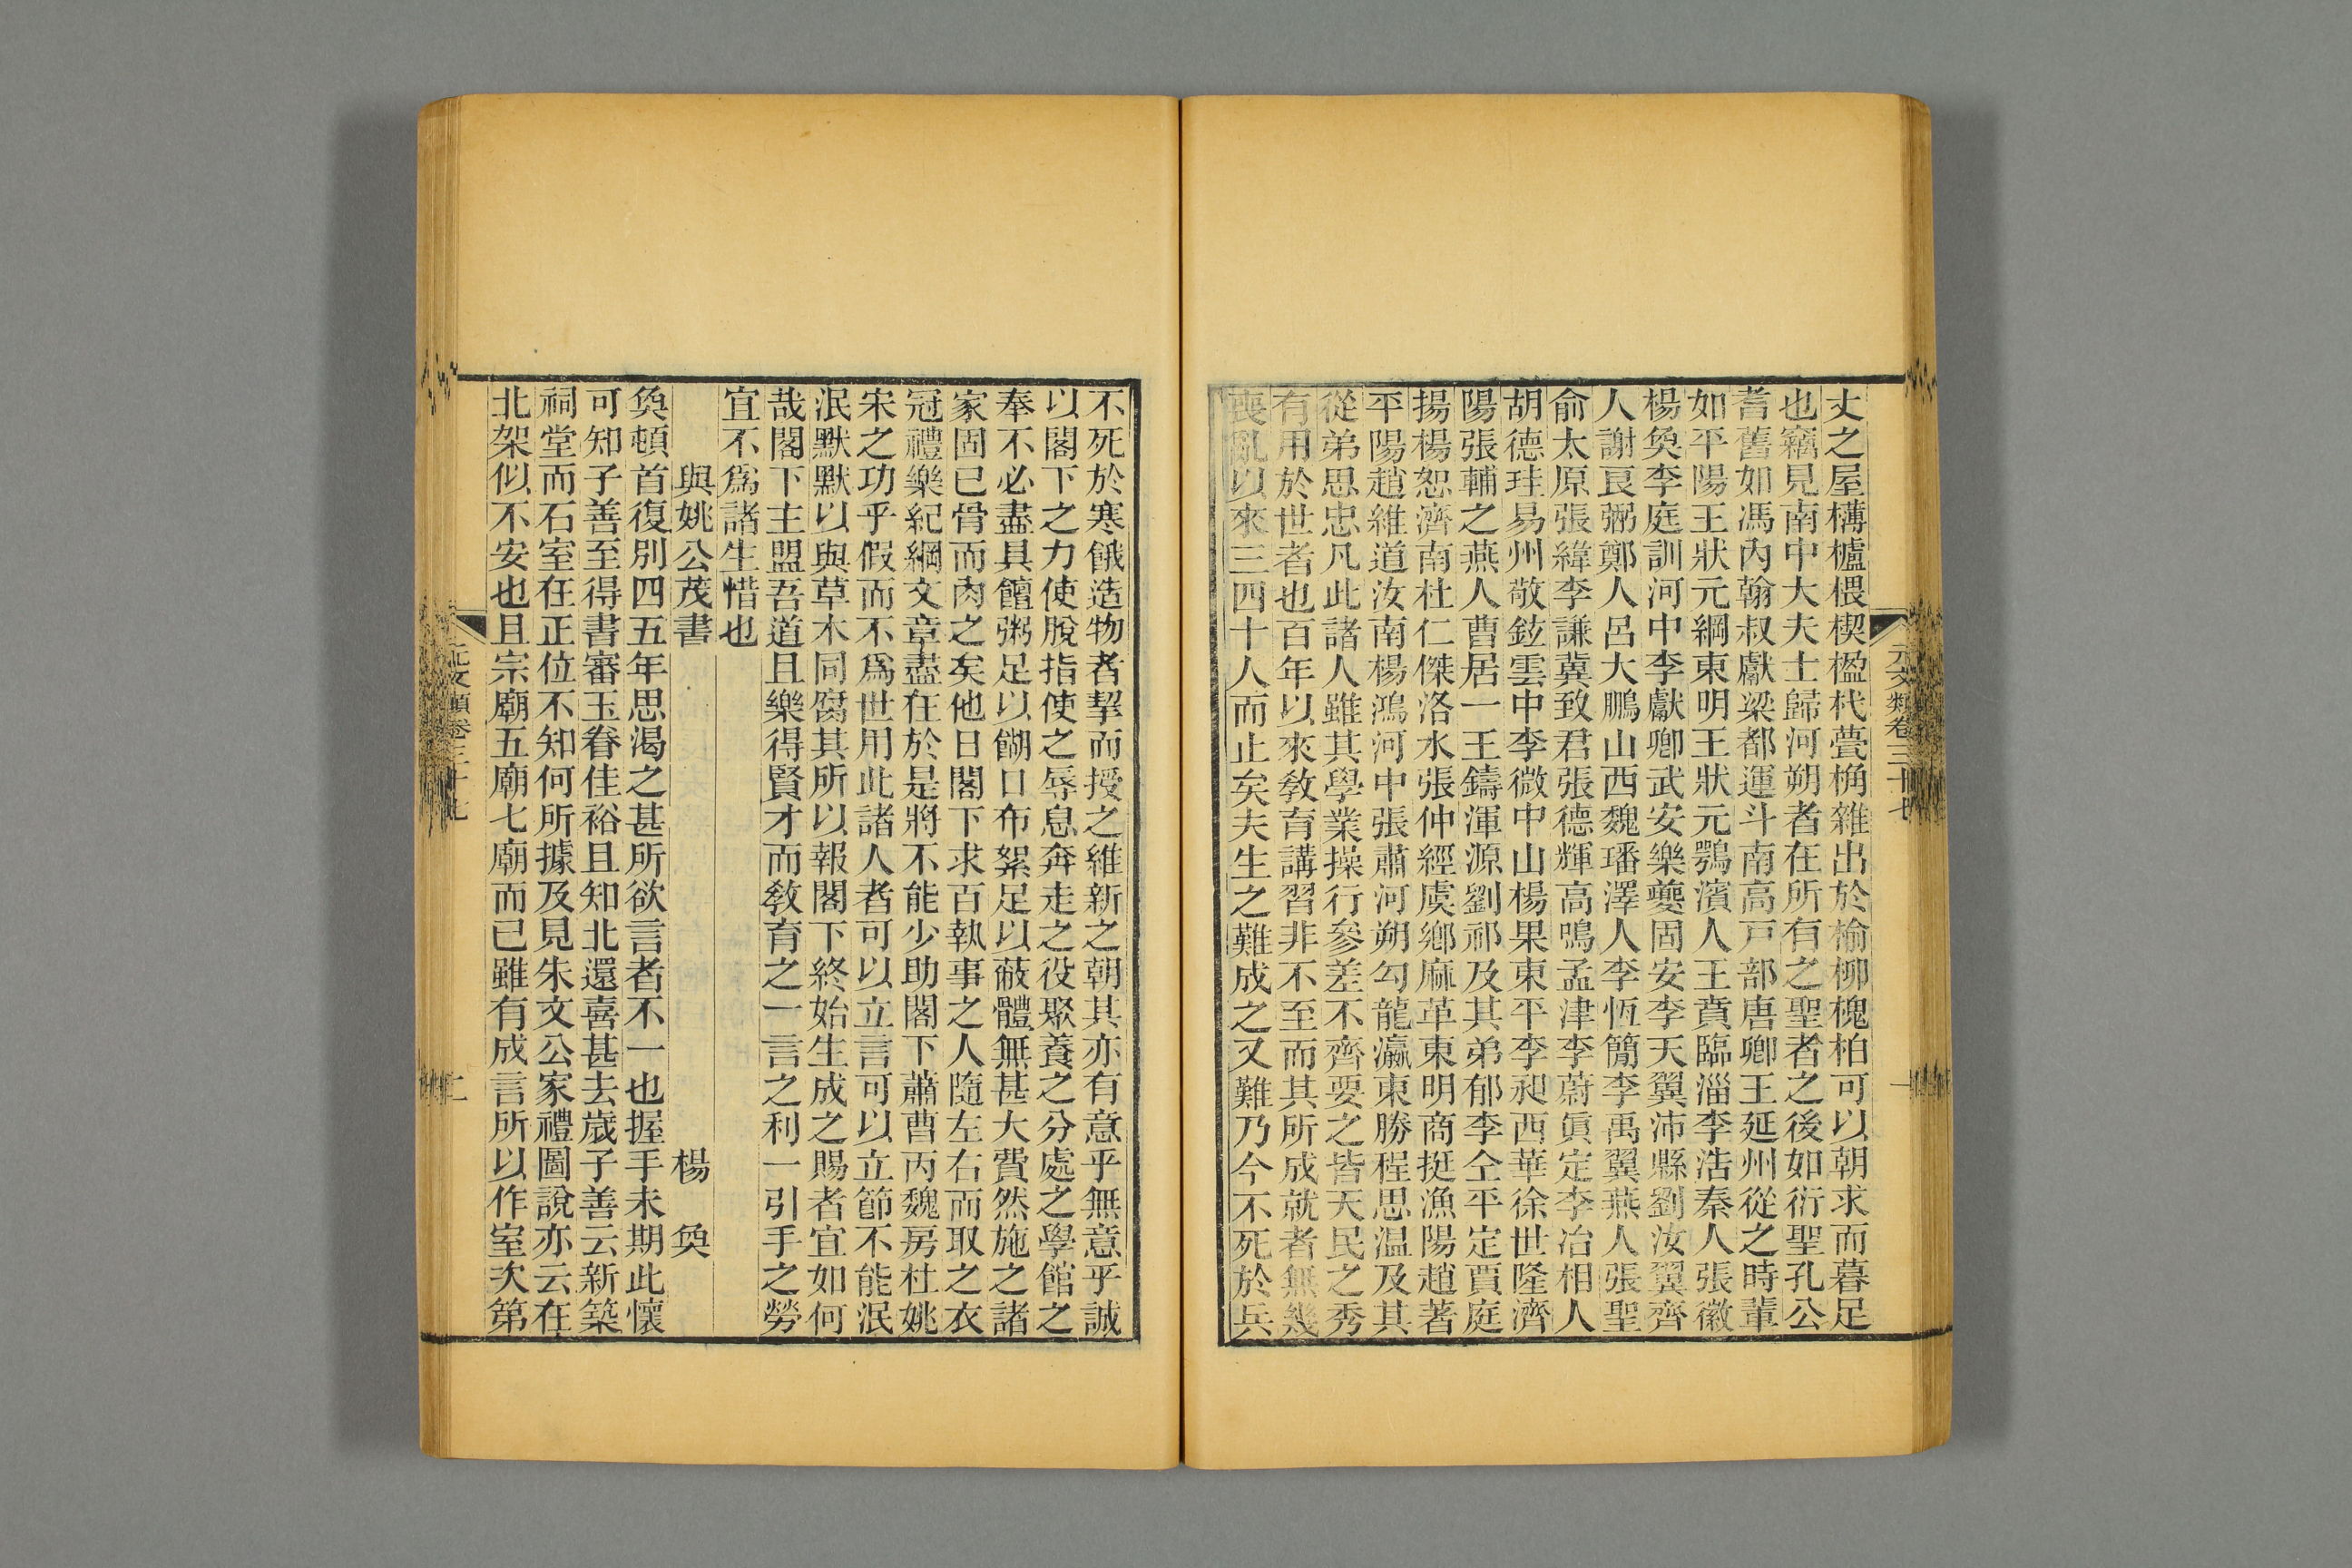 元文類卷三十七
一
丈之屋構櫨椳楔楹杙甍桷雜出於榆柳槐柏可以朝求而暮足
也竊見南中大夫士歸河朔者在所有之聖者之後如衍聖孔公
耆舊如馮內翰叔獻梁都運斗南高戸部唐卿王延州從之時輩
如平陽王狀元綱東明王狀元鶚濱人王賁臨淄李浩秦人張徽
楊奐李庭訓河中李獻卿武安樂夔固安李天翼沛縣劉汝翼齊
人謝良弼鄭人呂大鵬山西魏璠澤人李恆簡李禹翼燕人張聖
俞太原張緯李謙冀致君張德輝高鳴孟津李蔚眞定李冶相人
胡德珪易州敬鉉雲中李微中山楊果東平李昶西華徐世隆濟
陽張輔之燕人曹居一王鑄渾源劉祁及其弟郁李仝平定賈庭
揚楊恕濟南杜仁傑洛水張仲經虞鄉麻革東明商挺漁陽趙著
平陽趙維道汝南楊鴻河中張肅河朔勾龍瀛東勝程思温及其
從弟思忠凡此諸人雖其學業操行參差不齊要之皆天民之秀
有用於世者也百年以來敎育講習非不至而其所成就者無幾
喪亂以來三四十人而止矣夫生之難成之又難乃今不死於兵
不死於寒餓造物者挈而授之維新之朝其亦有意乎無意乎誠
以閣下之力使脫指使之辱息奔走之役聚養之分處之學館之
奉不必盡具饘粥足以餬口布絮足以蔽體無甚大費然施之諸
家固已骨而肉之矣他日閣下求百執事之人隨左右而取之衣
冠禮樂紀綱文章盡在於是將不能少助閣下蕭曹丙魏房杜姚
宋之功乎假而不爲世用此諸人者可以立言可以立節不能泯
泯默默以與草木同腐其所以報閣下終始生成之賜者宜如何
哉閣下主盟吾道且樂得賢才而敎育之一言之利一引手之勞
宜不爲諸生惜也
與姚公茂書　楊　奐
奐頓首復別四五年思渴之甚所欲言者不一也握手未期此懷
可知子善至得書審玉眷佳裕且知北還喜甚去歲子善云新築
祠堂而石室在正位不知何所據及見朱文公家禮圖說亦云在
北架似不安也且宗廟五廟七廟而已雖有成言所以作室次第
元文類卷三十七
二